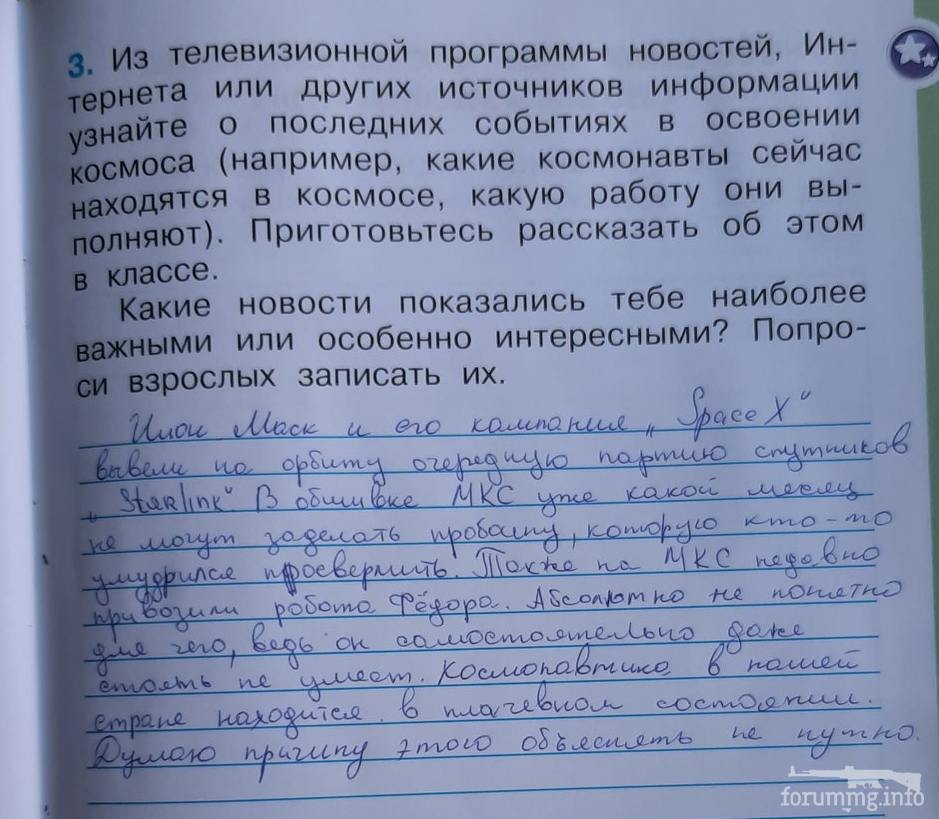 3. Из телевизионной программы новостей, Ин-
тернета или других источников информации
узнайте о последних событиях в освоении
космоса (например, какие космонавты сейчас
находятся в космосе, какую работу они вы-
полняют). Приготовьтесь рассказать об этом
в классе.
Какие новости показались тебе наиболее
важными или особенно интересными? Попро-
си взрослых записать их.
Илон Маск и его кампания „SpaceX"
вывели на орбиту очередную партию спутников
„Starlink" В обшивке МКС уже какой месяц
не могут заделать пробоину, которую кто-то
умудрился просверлить. Также на МКС недавно
привозили робота Фёдора. Абсолютно не понятно
для чего, ведь он самостоятельно даже
стоять не умеет. Космонавтика в нашей
стране находится в плачевном состоянии.
Думаю причину этого объяснять не нужно.
forummg.info